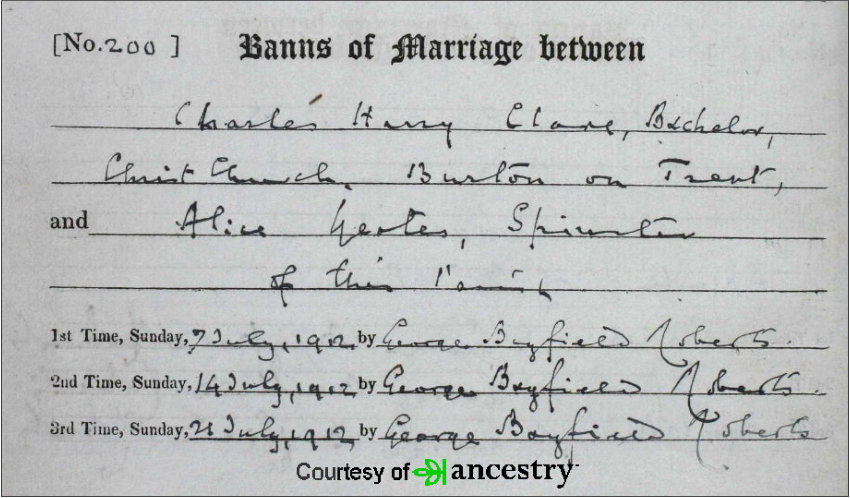 [No. 200 ] Banns of Marriage between
Charles Harry Clare, Bachelor,
Christ Church, Burton on Trent,
and Alice Yeates, Spinster
of this Parish
1st Time, Sunday, 7 July, 1912 by George Bayfield Roberts.
2nd Time, Sunday, 14 July, 1912 by George Bayfield Roberts.
3rd Time, Sunday, 21 July, 1912 by George Bayfield Roberts
Courtesy of ancestry